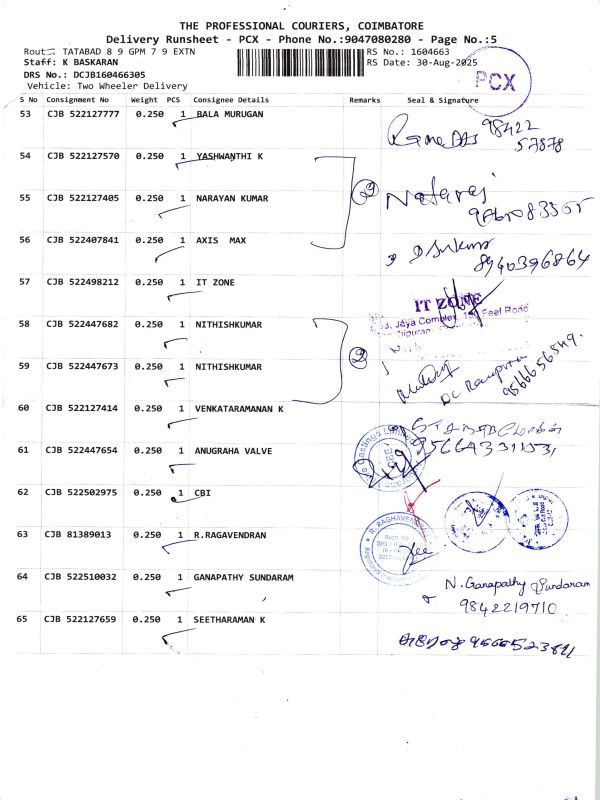 THE PROFESSIONAL COURIERS, COIMBATORE
Delivery Runsheet - PCX - Phone No.:9047080280 - Page No.:5
Route: TATABAD 8 9 GPM 7 9 EXTN RS No.: 1604663
Staff: K BASKARAN RS Date: 30-Aug-2025
DRS No.: DCJB160466305
Vehicle: Two Wheeler Delivery
PCX
S No Consignment No Weight PCS Consignee Details Remarks Seal & Signature
53 CJB 522127777 0.250 1 BALA MURUGAN 98422 57878
54 CJB 522127570 0.250 1 YASHWANTHI K
55 CJB 522127405 0.250 1 NARAYAN KUMAR Nataraj
56 CJB 522407841 0.250 1 AXIS MAX 8940396864
57 CJB 522498212 0.250 1 IT ZONE IT ZONE
Jaya Complex, Feet Road
58 CJB 522447682 0.250 1 NITHISHKUMAR
59 CJB 522447673 0.250 1 NITHISHKUMAR 9566656549
60 CJB 522127414 0.250 1 VENKATARAMANAN K
61 CJB 522447654 0.250 1 ANUGRAHA VALVE
62 CJB 522502975 0.250 1 CBI
63 CJB 81389013 0.250 1 R.RAGAVENDRAN R. RAGHAVENDRAN
64 CJB 522510032 0.250 1 GANAPATHY SUNDARAM N. Ganapathy Sundaram
9842219710
65 CJB 522127659 0.250 1 SEETHARAMAN K